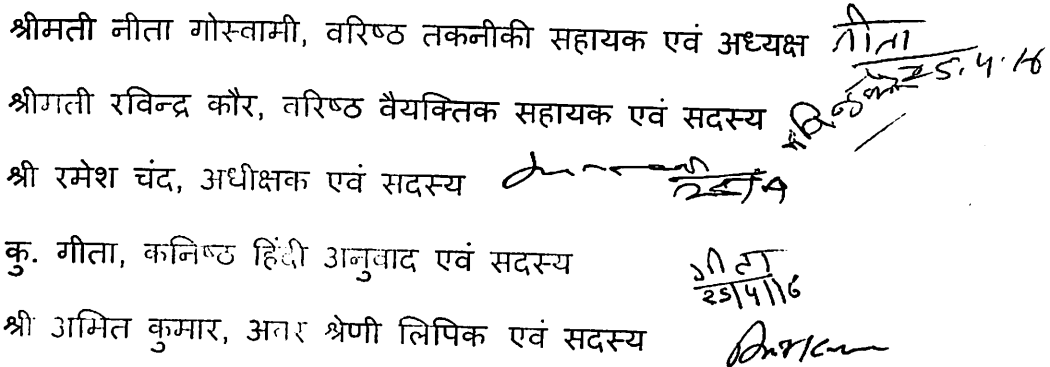 श्रीमती नीता गोस्वामी, वरिष्ठ तकनीकी सहायक एवं अध्यक्ष नीता 25.4.16
श्रीमती रविन्द्र कौर, वरिष्ठ वैयक्तिक सहायक एवं सदस्य
श्री रमेश चंद, अधीक्षक एवं सदस्य 25/4
कु. गीता, कनिष्ठ हिंदी अनुवाद एवं सदस्य गीता 25/4/16
श्री अमित कुमार, अवर श्रेणी लिपिक एवं सदस्य